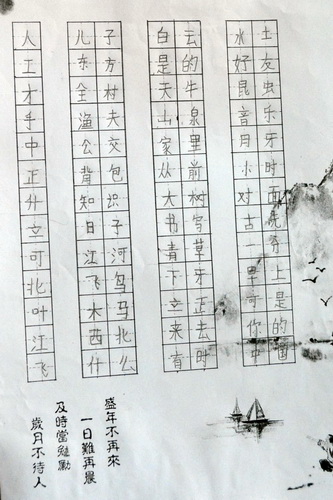 人
工
才
手
中
正
什
立
可
北
叶
江
飞
儿子
东方
全村
渔夫
公交
背包
知识
日子
江河
飞鸟
木马
西北
什么
白云
是的
天牛
山泉
家里
从前
大树
书写
青草
下牙
立正
来去
有时
水土
好友
昆虫
音乐
月牙
小时
对面
古
一
早上
可是
你的
中国
盛年不再來
一日難再晨
及時當勉勵
歲月不待人